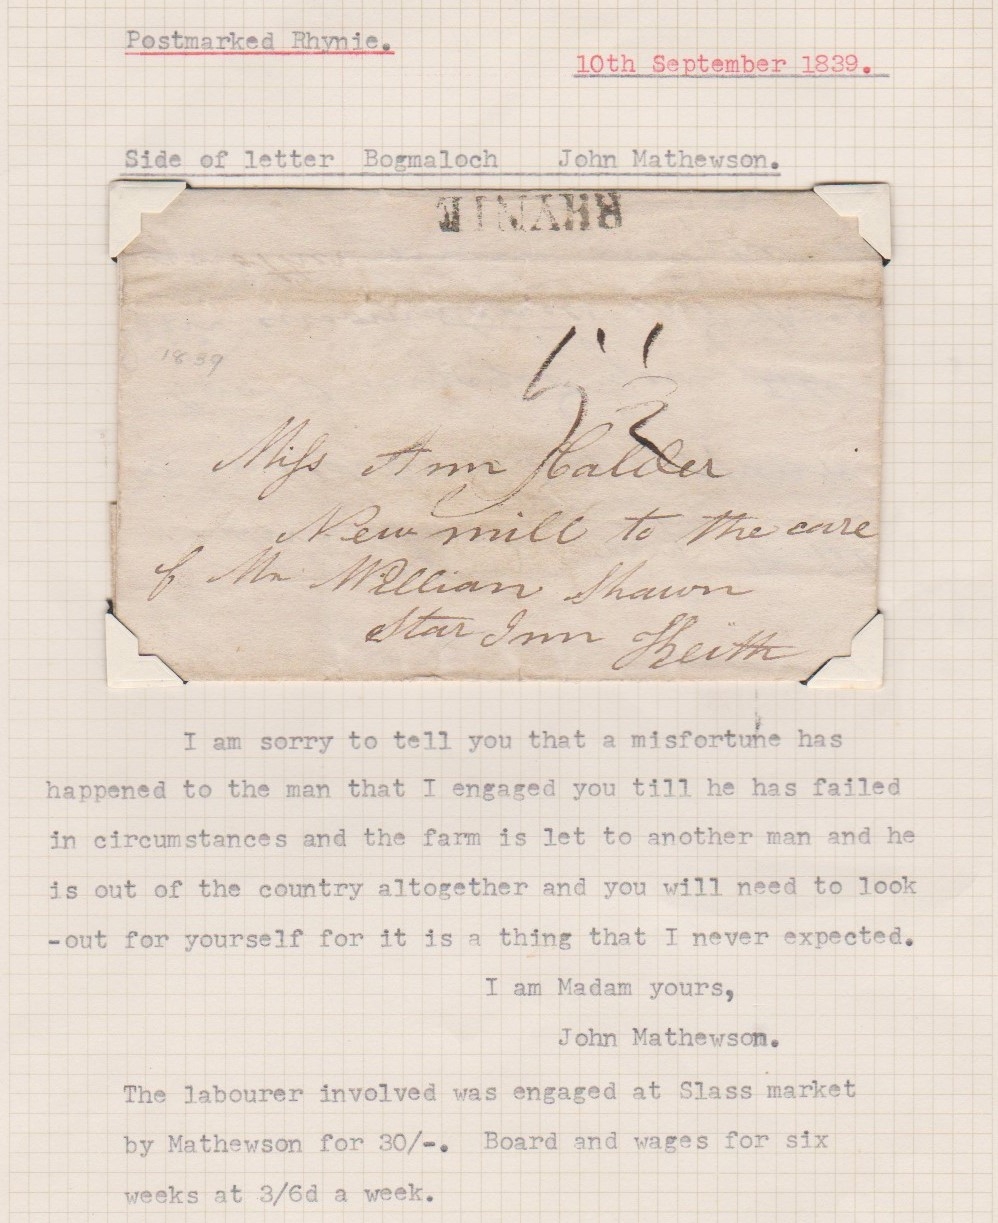 Postmarked Rhynie.
10th September 1839.
Side of letter Bogmaloch John Mathewson.
RHYNIE
1839
5 1/2
Miss Ann Calder
New mill to the care
of Mr William Shawn
Star Inn Keith
I am sorry to tell you that a misfortune has
happened to the man that I engaged you till he has failed
in circumstances and the farm is let to another man and he
is out of the country altogether and you will need to look
-out for yourself for it is a thing that I never expected.
I am Madam yours,
John Mathewson.
The labourer involved was engaged at Slass market
by Mathewson for 30/-. Board and wages for six
weeks at 3/6d a week.